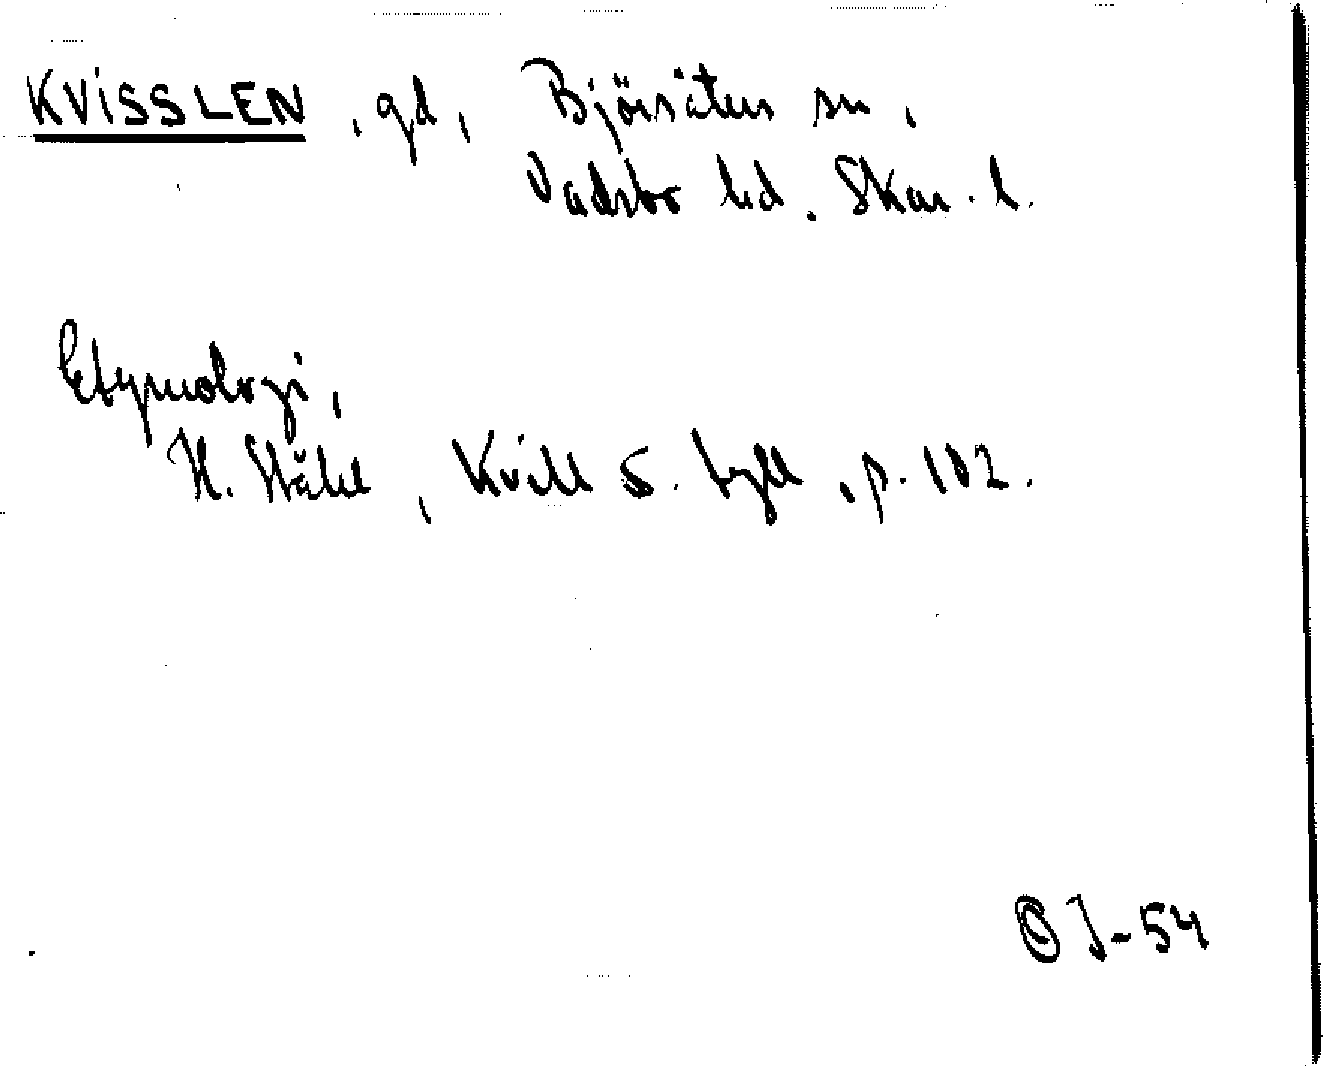 KVISSLEN, gd, Björsäters sn,
Vadsbo hd. Skar. l.
Etymologi,
H. Ståhl, Kvill o. tyll, p. 102.
OJ-54